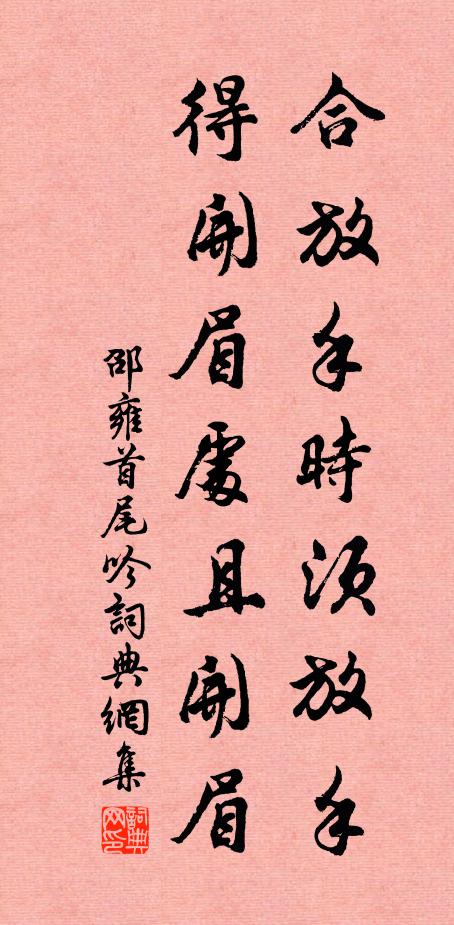 合放手時須放手
得開眉處且開眉
邵雍首尾吟詞典網集
詞典
网印